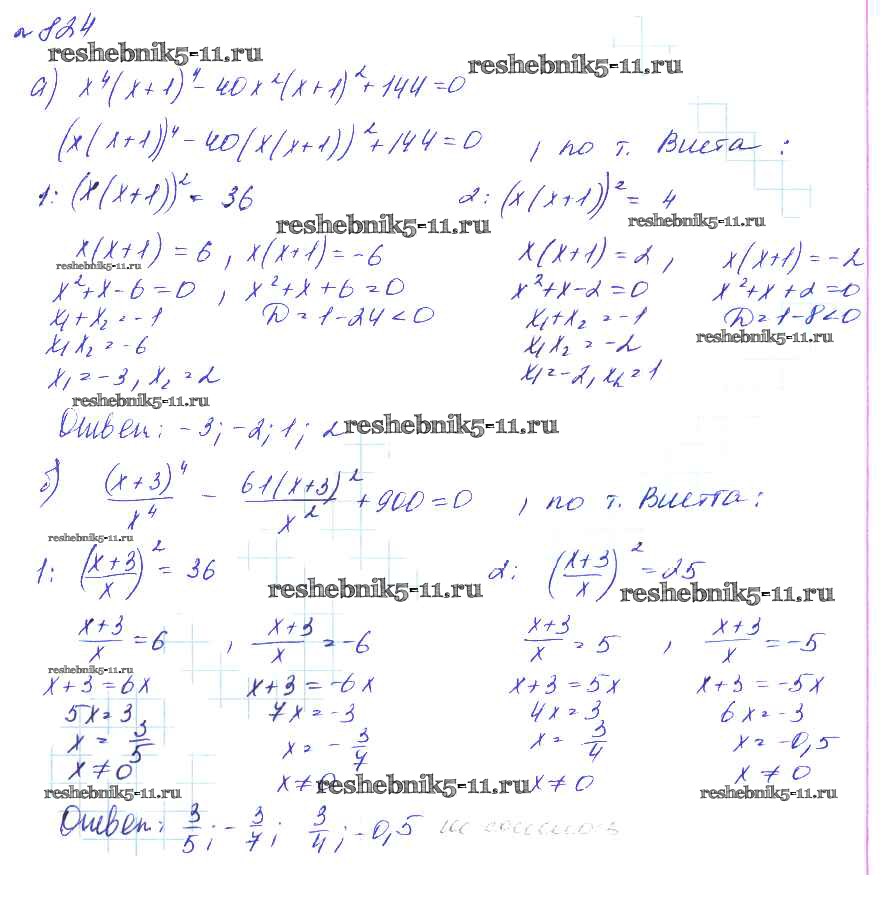 № 824
reshebnik5-11.ru
reshebnik5-11.ru
а) x⁴(x+1)⁴ - 40x²(x+1)² + 144 = 0
(x(x+1))⁴ - 40(x(x+1))² + 144 = 0 , по т. Виета :
1: (x(x+1))² = 36 2: (x(x+1))² = 4
reshebnik5-11.ru reshebnik5-11.ru
x(x+1) = 6 , x(x+1) = -6 x(x+1) = 2 , x(x+1) = -2
reshebnik5-11.ru
x²+x-6=0 , x²+x+6=0 x²+x-2=0 x²+x+2=0
x₁+x₂=-1 D=1-24<0 x₁+x₂=-1 D=1-8<0
reshebnik5-11.ru
x₁x₂=-6 x₁x₂=-2
x₁=-3, x₂=2 x₁=-2, x₂=1
reshebnik5-11.ru
Ответ: -3; -2; 1; 2
reshebnik5-11.ru
б) (x+3)⁴/x⁴ - 61(x+3)²/x² + 900 = 0 , по т. Виетта :
reshebnik5-11.ru
1: ((x+3)/x)² = 36 2: ((x+3)/x)² = 25
reshebnik5-11.ru reshebnik5-11.ru
(x+3)/x = 6 , (x+3)/x = -6 (x+3)/x = 5 , (x+3)/x = -5
reshebnik5-11.ru
x+3=6x x+3=-6x x+3=5x x+3=-5x
5x=3 7x=-3 4x=3 6x=-3
x = 3/5 x = -3/7 x = 3/4 x=-0,5
x≠0 x≠0 x≠0 x≠0
reshebnik5-11.ru reshebnik5-11.ru reshebnik5-11.ru
Ответ: 3/5; -3/7; 3/4; -0,5